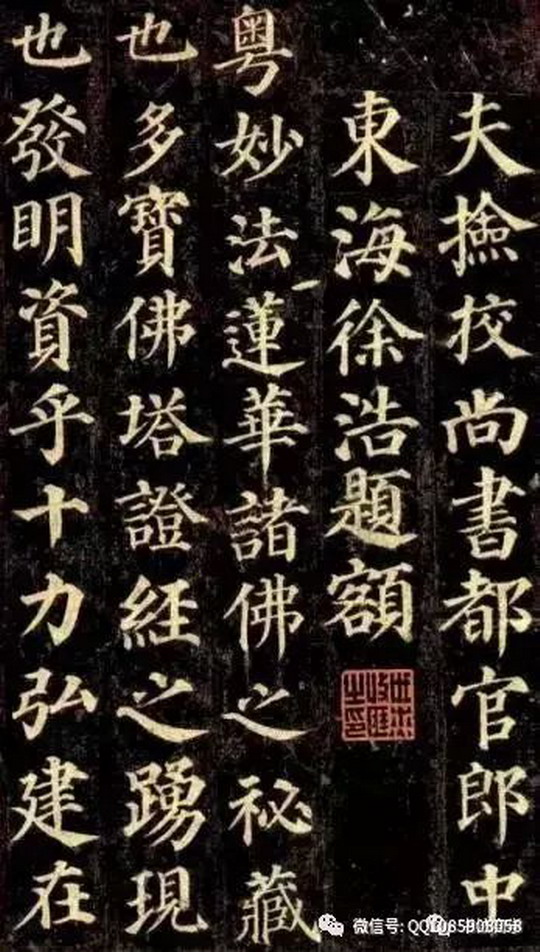 夫撿校尚書都官郎中
東海徐浩題額
粤妙法蓮華諸佛之祕藏
也多寶佛塔證経之踴現
也發明資乎十力弘建在
微信号: